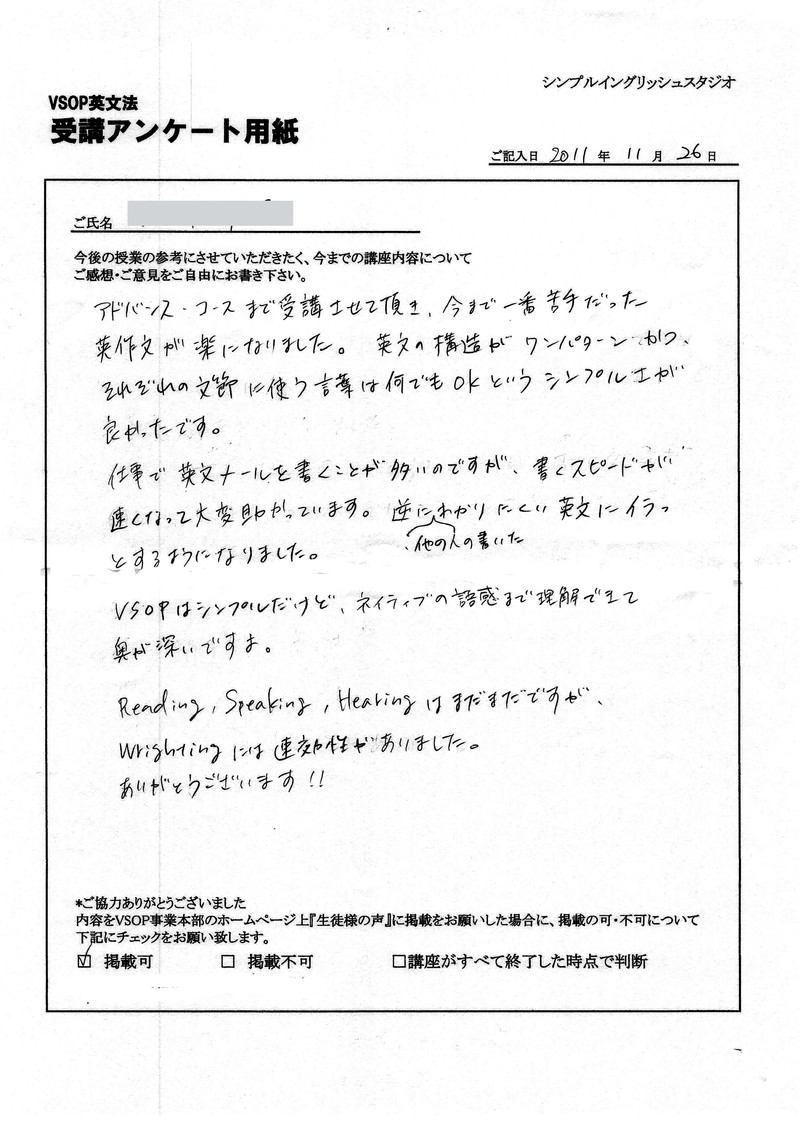 シンプルイングリッシュスタジオ
VSOP英文法
受講アンケート用紙
ご記入日 2011 年 11 月 26 日
ご氏名
今後の授業の参考にさせていただきたく、今までの講座内容について
ご感想・ご意見をご自由にお書き下さい。
アドバンス・コースまで受講させて頂き、今まで一番苦手だった
英作文が楽になりました。 英文の構造がワンパターンかつ、
それぞれの文節に使う言葉は何でもOKというシンプルさが
良かったです。
仕事で英文メールを書くことが多いのですが、書くスピードが
速くなって大変助かっています。逆にわかりにくい英文にイラッ
他の人の書いた
とするようになりました。
VSOPはシンプルだけど、ネイティブの語感まで理解できて
奥が深いですよ。
Reading, Speaking, Hearing はまだまだですが、
Wrighting には速効性がありました。
ありがとうございます!!
*ご協力ありがとうございました
内容をVSOP事業本部のホームページ上『生徒様の声』に掲載をお願いした場合に、掲載の可・不可について
下記にチェックをお願い致します。
☑ 掲載可 □ 掲載不可 □講座がすべて終了した時点で判断